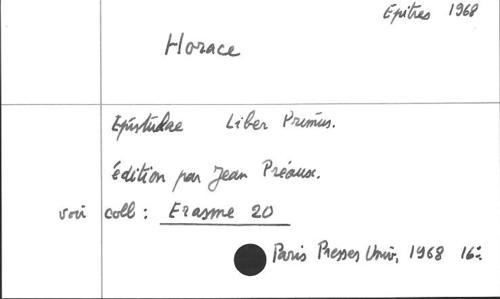 Epitres 1968
Horace
Epistulae Liber Primus.
édition par Jean Préaux.
voir coll : Erasme 20
Paris Presses Univ, 1968 16º